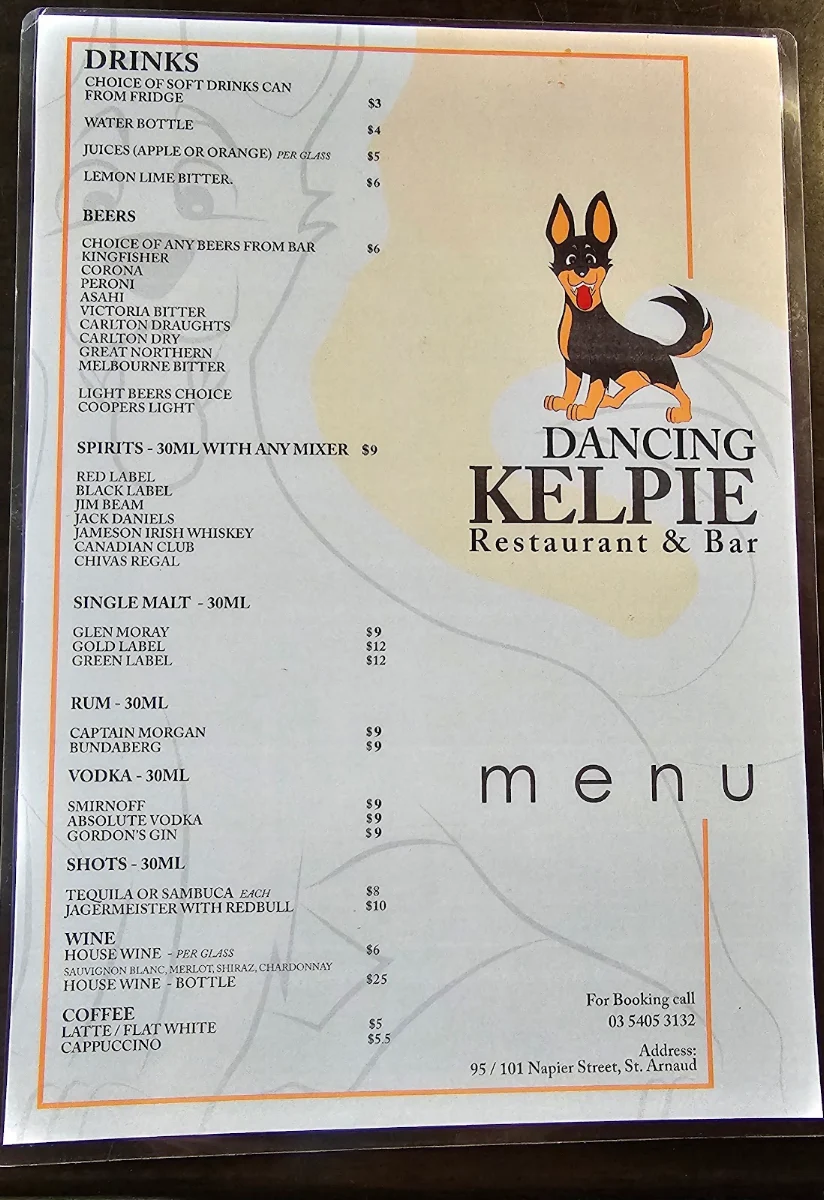 DRINKS
CHOICE OF SOFT DRINKS CAN
FROM FRIDGE $3
WATER BOTTLE $4
JUICES (APPLE OR ORANGE) PER GLASS $5
LEMON LIME BITTER. $6
BEERS
CHOICE OF ANY BEERS FROM BAR $6
KINGFISHER
CORONA
PERONI
ASAHI
VICTORIA BITTER
CARLTON DRAUGHTS
CARLTON DRY
GREAT NORTHERN
MELBOURNE BITTER
LIGHT BEERS CHOICE
COOPERS LIGHT
SPIRITS - 30ML WITH ANY MIXER $9
RED LABEL
BLACK LABEL
JIM BEAM
JACK DANIELS
JAMESON IRISH WHISKEY
CANADIAN CLUB
CHIVAS REGAL
SINGLE MALT - 30ML
GLEN MORAY $9
GOLD LABEL $12
GREEN LABEL $12
RUM - 30ML
CAPTAIN MORGAN $9
BUNDABERG $9
VODKA - 30ML
SMIRNOFF $9
ABSOLUTE VODKA $9
GORDON'S GIN $9
SHOTS - 30ML
TEQUILA OR SAMBUCA EACH $8
JAGERMEISTER WITH REDBULL $10
WINE
HOUSE WINE - PER GLASS $6
SAUVIGNON BLANC, MERLOT, SHIRAZ, CHARDONNAY
HOUSE WINE - BOTTLE $25
COFFEE
LATTE / FLAT WHITE $5
CAPPUCCINO $5.5
DANCING
KELPIE
Restaurant & Bar
menu
For Booking call
03 5405 3132
Address:
95 / 101 Napier Street, St. Arnaud